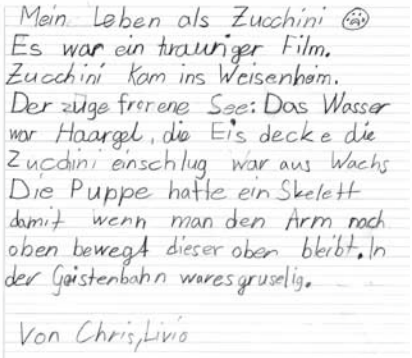 Mein Leben als Zucchini
Es war ein trauriger Film.
Zucchini kam ins Weisenheim.
Der züge frorene See: Das Wasser
war Haargel, die Eis decke die
Zucchini einschlug war aus Wachs
Die Puppe hatte ein Skelett
damit wenn man den Arm noch
oben bewegt dieser oben bleibt. In
der Geistenbahn wares gruselig.
Von Chris, Livio